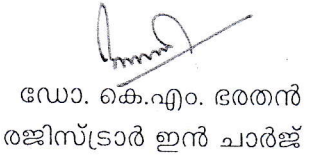 ഡോ. കെ.എം. ഭരതൻ
രജിസ്ട്രാർ ഇൻ ചാർജ്